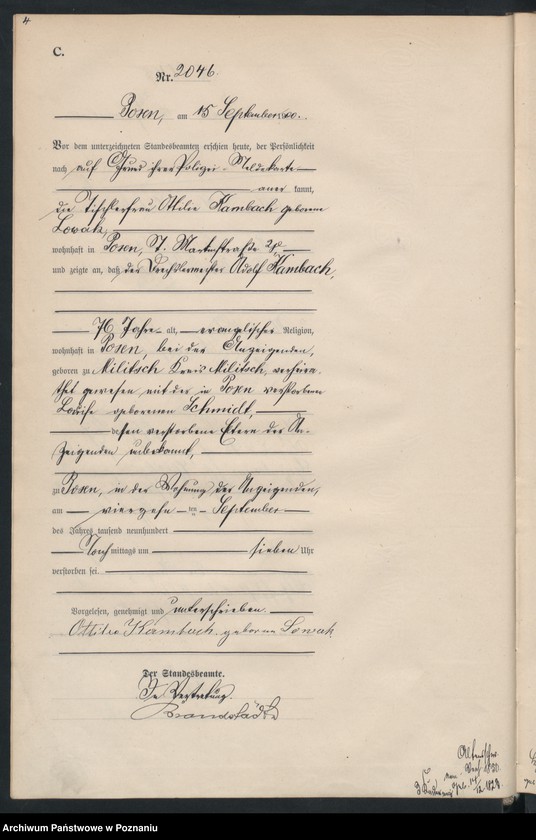 4
C.
Nr. 2046.
Posen, am 15 September 00.
Vor dem unterzeichneten Standesbeamten erschien heute, der Persönlichkeit
nach auf Grund ihrer Polizei-Meldekarte
aner kannt,
die Tischlerfrau Othilie Kambach geborene
Lowak,
wohnhaft in Posen, St. Martinstraße 2
und zeigte an, daß der Drechslermeister Adolf Kambach,
76 Jahre alt, evangelischer Religion,
wohnhaft in Posen, bei der Anzeigenden,
geboren zu Militsch Kreis Militsch, verheira-
thet gewesen mit der in Posen verstorbenen
Louise geborenen Schmidt,
dessen verstorbene Eltern der An-
zeigenden unbekannt,
zu Posen, in der Wohnung der Anzeigenden,
am vierzehn ten September
des Jahres tausend neunhundert
Nach mittags um sieben Uhr
verstorben sei.
Vorgelesen, genehmigt und unterschrieben.
Ottilie Kambach geborne Lowak
Der Standesbeamte.
In Vertretung.
Brandstädte
1830.
3 Kinder
14/12.1828
Archiwum Państwowe w Poznaniu